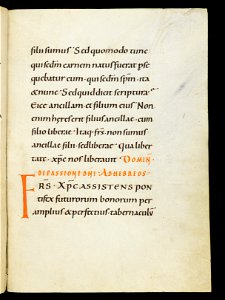 filii sumus. Sed quomodo tunc
qui sedm carnem natus fuerat pse
quebatur eum qui sedm spm. ita
& nunc. Sed quid dicit scriptura
Eice ancillam et filium eius. Non
enim heres erit filius ancillae. cum
filio liberae. Itaq. frs. non sumus
ancillae filii. sed liberae. Qua liber
tate. xpc nos liberauit. DOMIN.
DE PASSIONE DNI. AD HEBREOS.
FRS. XPC ASSISTENS pon
tifex futurorum bonorum per
amplius & perfectius tabernaculū